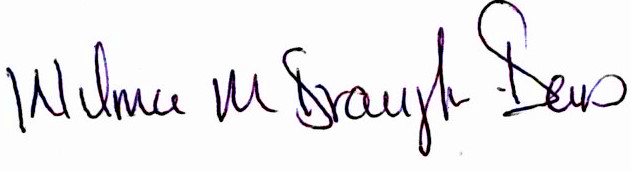 Wilma M Draugh-Deas